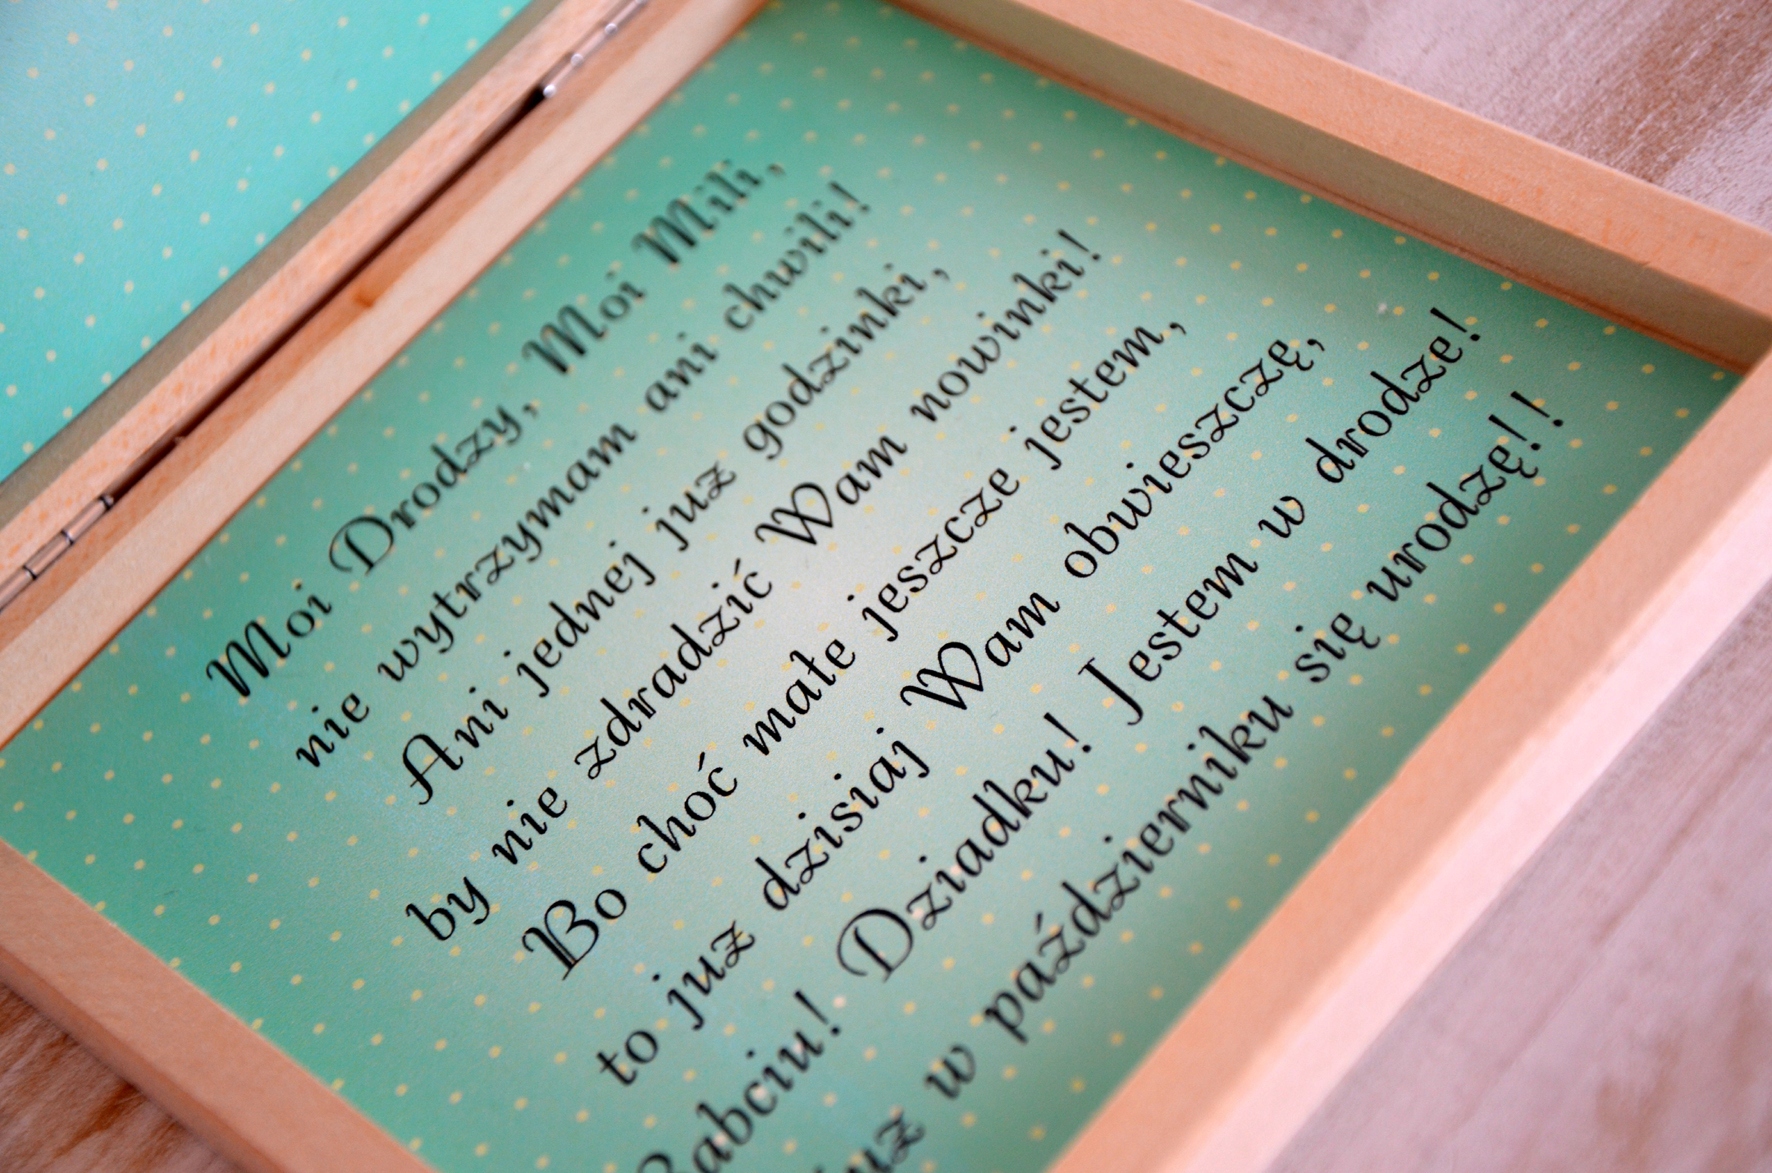 Moi Drodzy, Moi Mili,
nie wytrzymam ani chwili!
Ani jednej juz godzinki,
by nie zdradzić Wam nowinki!
Bo choć małe jeszcze jestem,
to juz dzisiaj Wam obwieszczę,
Babciu! Dziadku! Jestem w drodze!
juz w październiku się urodzę!!